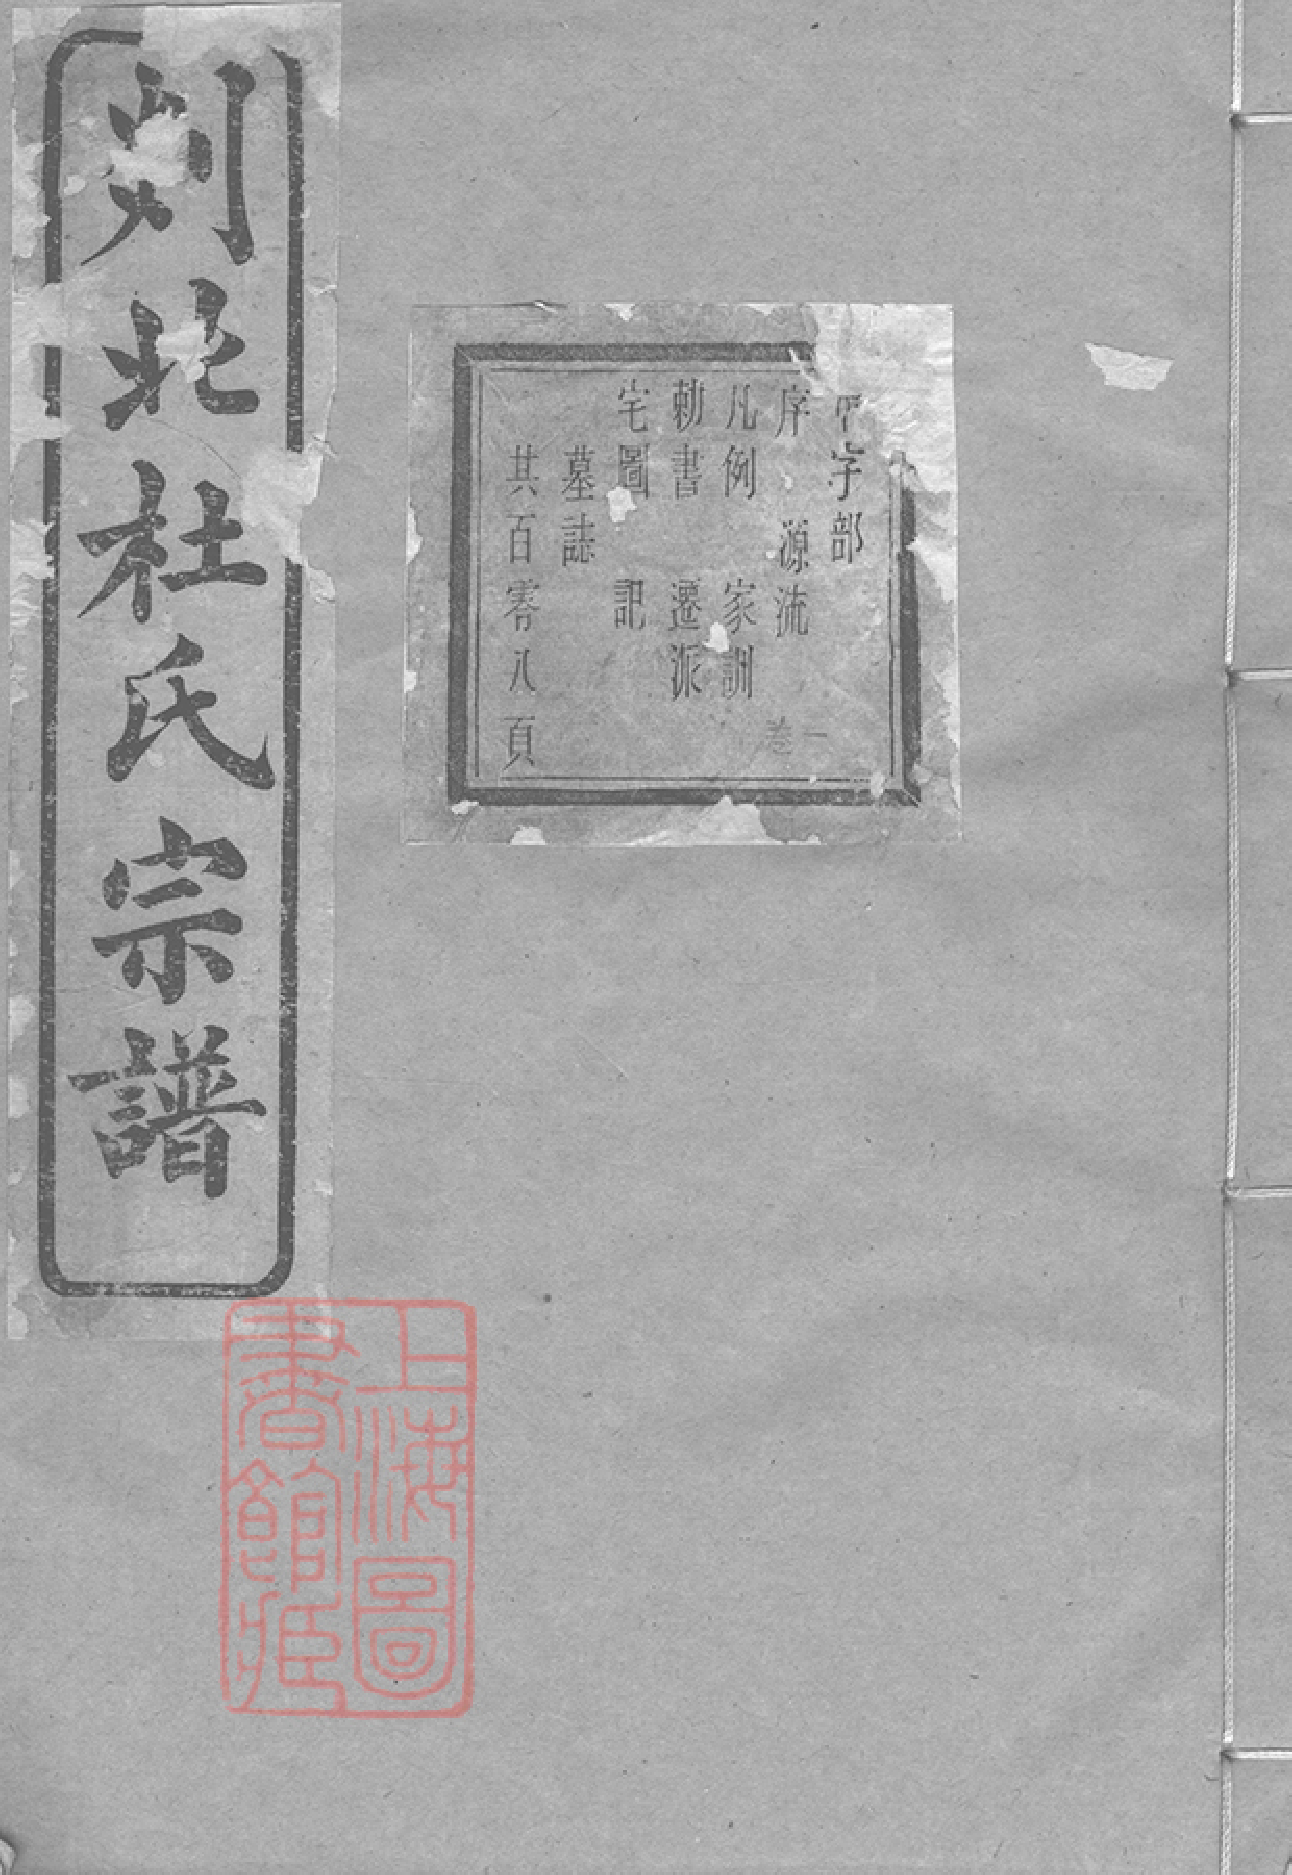 剡北杜氏宗譜
甲字部
序 源流
凡例 家訓
勅書 遷派
宅圖 記
墓誌
其百零八頁
卷一
上海圖
書館藏